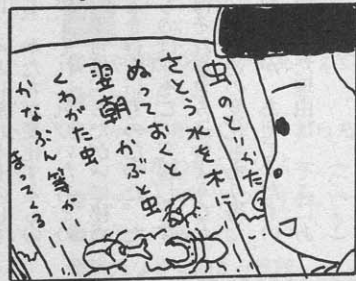 虫のといかた
さとう水を木に
ぬっておくと
翌朝・かぶと虫
くわがた虫
かなぶん等がい
まってくる